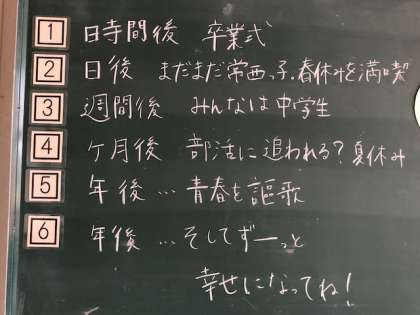 1 日時間後 卒業式
2 日後 まだまだ常西っ子。春休みを満喫
3 週間後 みんなは中学生
4 ケ月後 部活に追われる?夏休み
5 年後 … 青春を謳歌
6 年後 … そしてずーっと
幸せになってね!